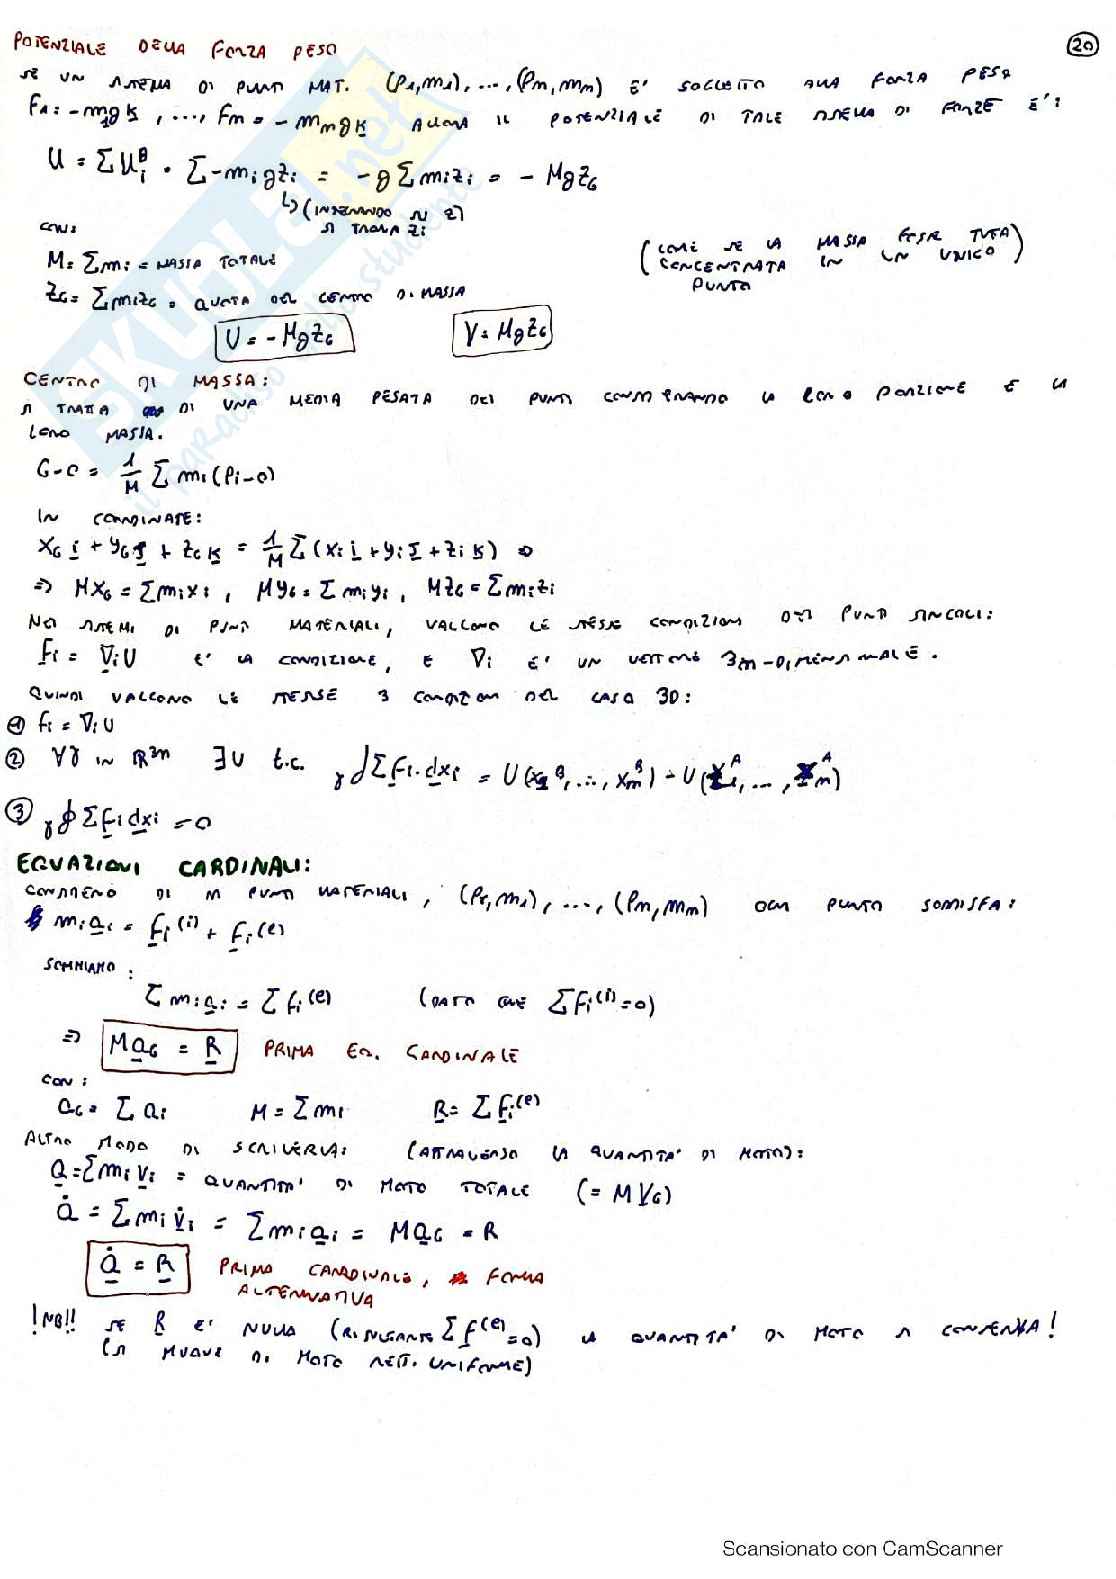 POTENZIALE DELLA FORZA PESO
20
SE UN SISTEMA DI PUNTI MAT. (P₁,m₁), ..., (Pₙ,mₙ) E' SOGGETTO ALLA FORZA PESO
F₁ = -m₁g k, ..., Fₙ = -mₙg k ALLORA IL POTENZIALE DI TALE SISTEMA DI FORZE E':
U = ΣUᵢ = Σ-mᵢgzᵢ = -gΣmᵢzᵢ = -MgzG
↳ (INTEGRANDO IN Z)
SI TROVA Zᵢ
CON:
M = Σmᵢ = MASSA TOTALE
(COME SE LA MASSA FOSSE TUTTA
CONCENTRATA IN UN UNICO
PUNTO)
zG = Σmᵢzᵢ = QUOTA DEL CENTRO DI MASSA
U = -MgzG
V = MgzG
CENTRO DI MASSA:
SI TRATTA DI UNA MEDIA PESATA DEI PUNTI CONSIDERANDO LA LORO POSIZIONE E LA
LORO MASSA.
G-O = 1/M Σ mᵢ(Pᵢ-O)
IN COORDINATE:
xG i + yG j + zG k = 1/M Σ(xᵢ i + yᵢ j + zᵢ k) ⇒
⇒ MxG = Σmᵢxᵢ, MyG = Σmᵢyᵢ, MzG = Σmᵢzᵢ
NEI SISTEMI DI PUNTI MATERIALI, VALGONO LE STESSE CONDIZIONI DEI PUNTI SINGOLI:
Fᵢ = ∇ᵢU E' LA CONDIZIONE, E ∇ᵢ E' UN VETTORE 3n-DIMENSIONALE.
QUINDI VALGONO LE STESSE 3 CONDIZIONI DEL CASO 3D:
① Fᵢ = ∇ᵢU
② ∀γ IN R³ⁿ ∃U t.c. γ∫ΣFᵢ·dxᵢ = U(x₁ᴮ, ..., xₙᴮ) - U(x₁ᴬ, ..., xₙᴬ)
③ γ∮ΣFᵢdxᵢ = 0
EQUAZIONI CARDINALI:
CONSIDERO DI N PUNTI MATERIALI, (P₁,m₁), ..., (Pₙ,mₙ) OGNI PUNTO SODDISFA:
mᵢaᵢ = Fᵢ⁽ⁱ⁾ + Fᵢ⁽ᵉ⁾
SOMMIAMO:
Σmᵢaᵢ = ΣFᵢ⁽ᵉ⁾ (DATO CHE ΣFᵢ⁽ⁱ⁾=0)
⇒ MaG = R PRIMA EQ. CARDINALE
CON:
aG = Σaᵢ M = Σmᵢ R = ΣFᵢ⁽ᵉ⁾
ALTRO MODO DI SCRIVERLA: (ATTRAVERSO LA QUANTITA' DI MOTO):
Q = Σmᵢvᵢ = QUANTITA' DI MOTO TOTALE (= MVG)
Q̇ = Σmᵢv̇ᵢ = Σmᵢaᵢ = MaG = R
Q̇ = R PRIMA CARDINALE, FORMA
ALTERNATIVA
!NB!! SE R E' NULLA (RISULTANTE ΣF⁽ᵉ⁾=0) LA QUANTITA' DI MOTO SI CONSERVA!
(SI MUOVE DI MOTO RETT. UNIFORME)
SKUOLA.net
il paradiso dello studente
Scansionato con CamScanner